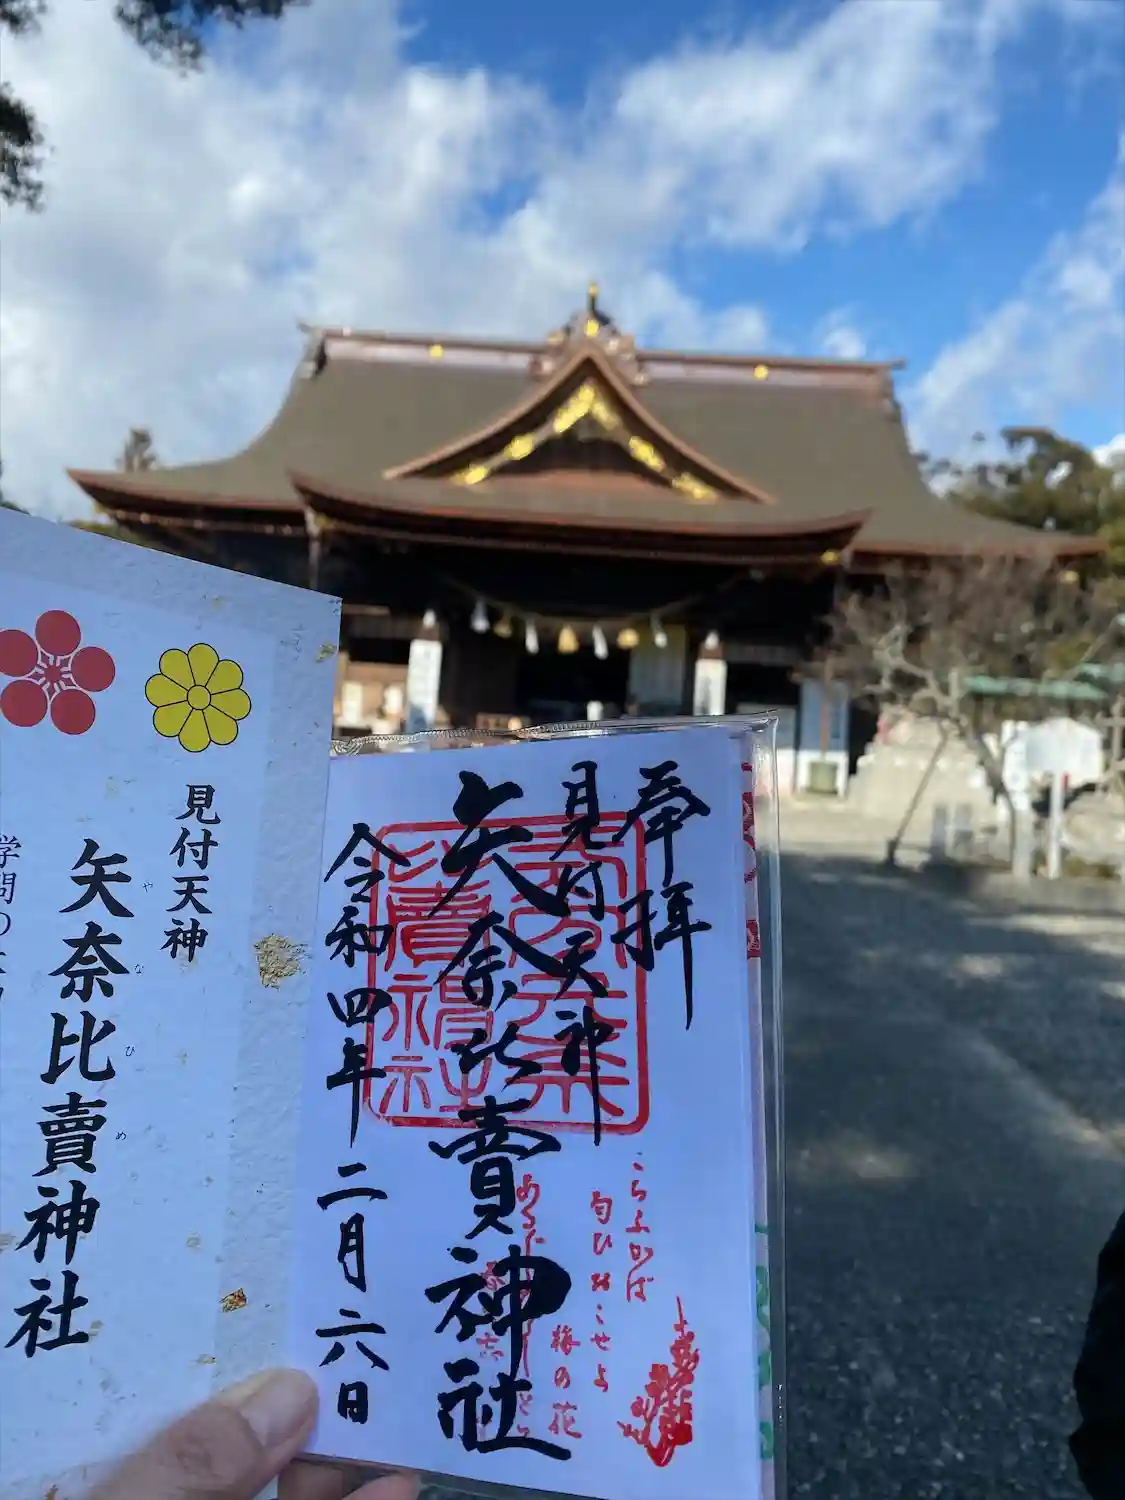 奉拝
見付天神
矢奈比賣神社
令和四年二月六日
こちふかば
匂ひおこせよ
梅の花
見付天神
矢奈比賣神社
やなひめ
学問の